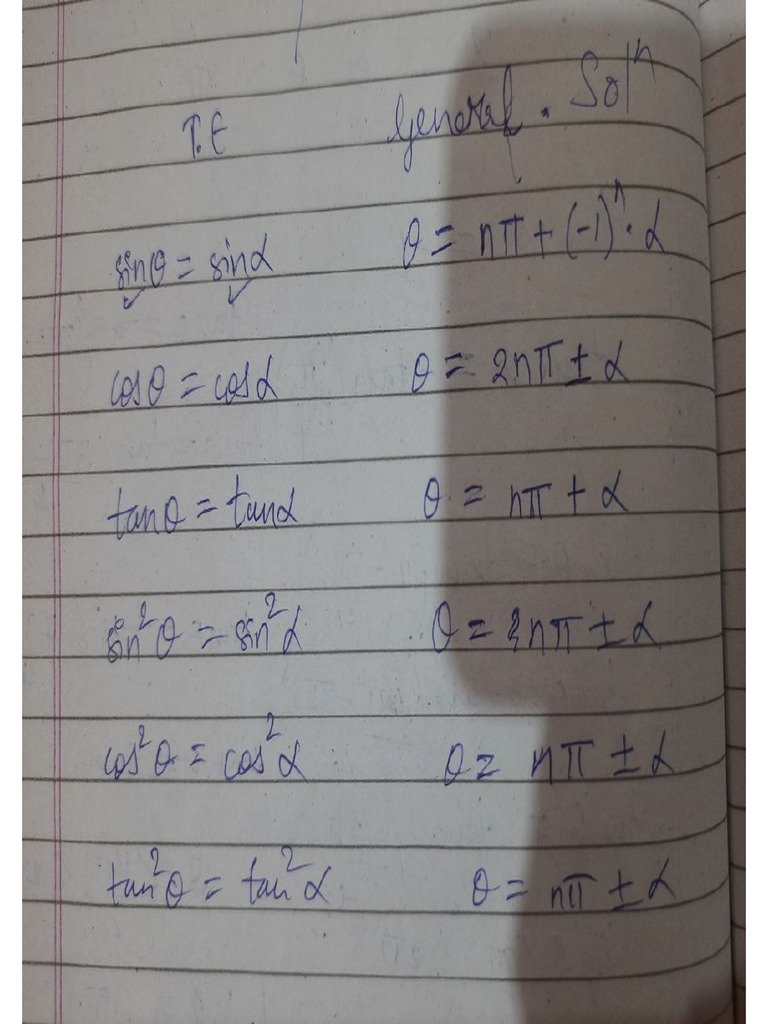 T.E General. Solⁿ
sinθ = sinα θ = nπ + (-1)ⁿ · α
cosθ = cosα θ = 2nπ ± α
tanθ = tanα θ = nπ + α
sin²θ = sin²α θ = nπ ± α
cos²θ = cos²α θ = nπ ± α
tan²θ = tan²α θ = nπ ± α